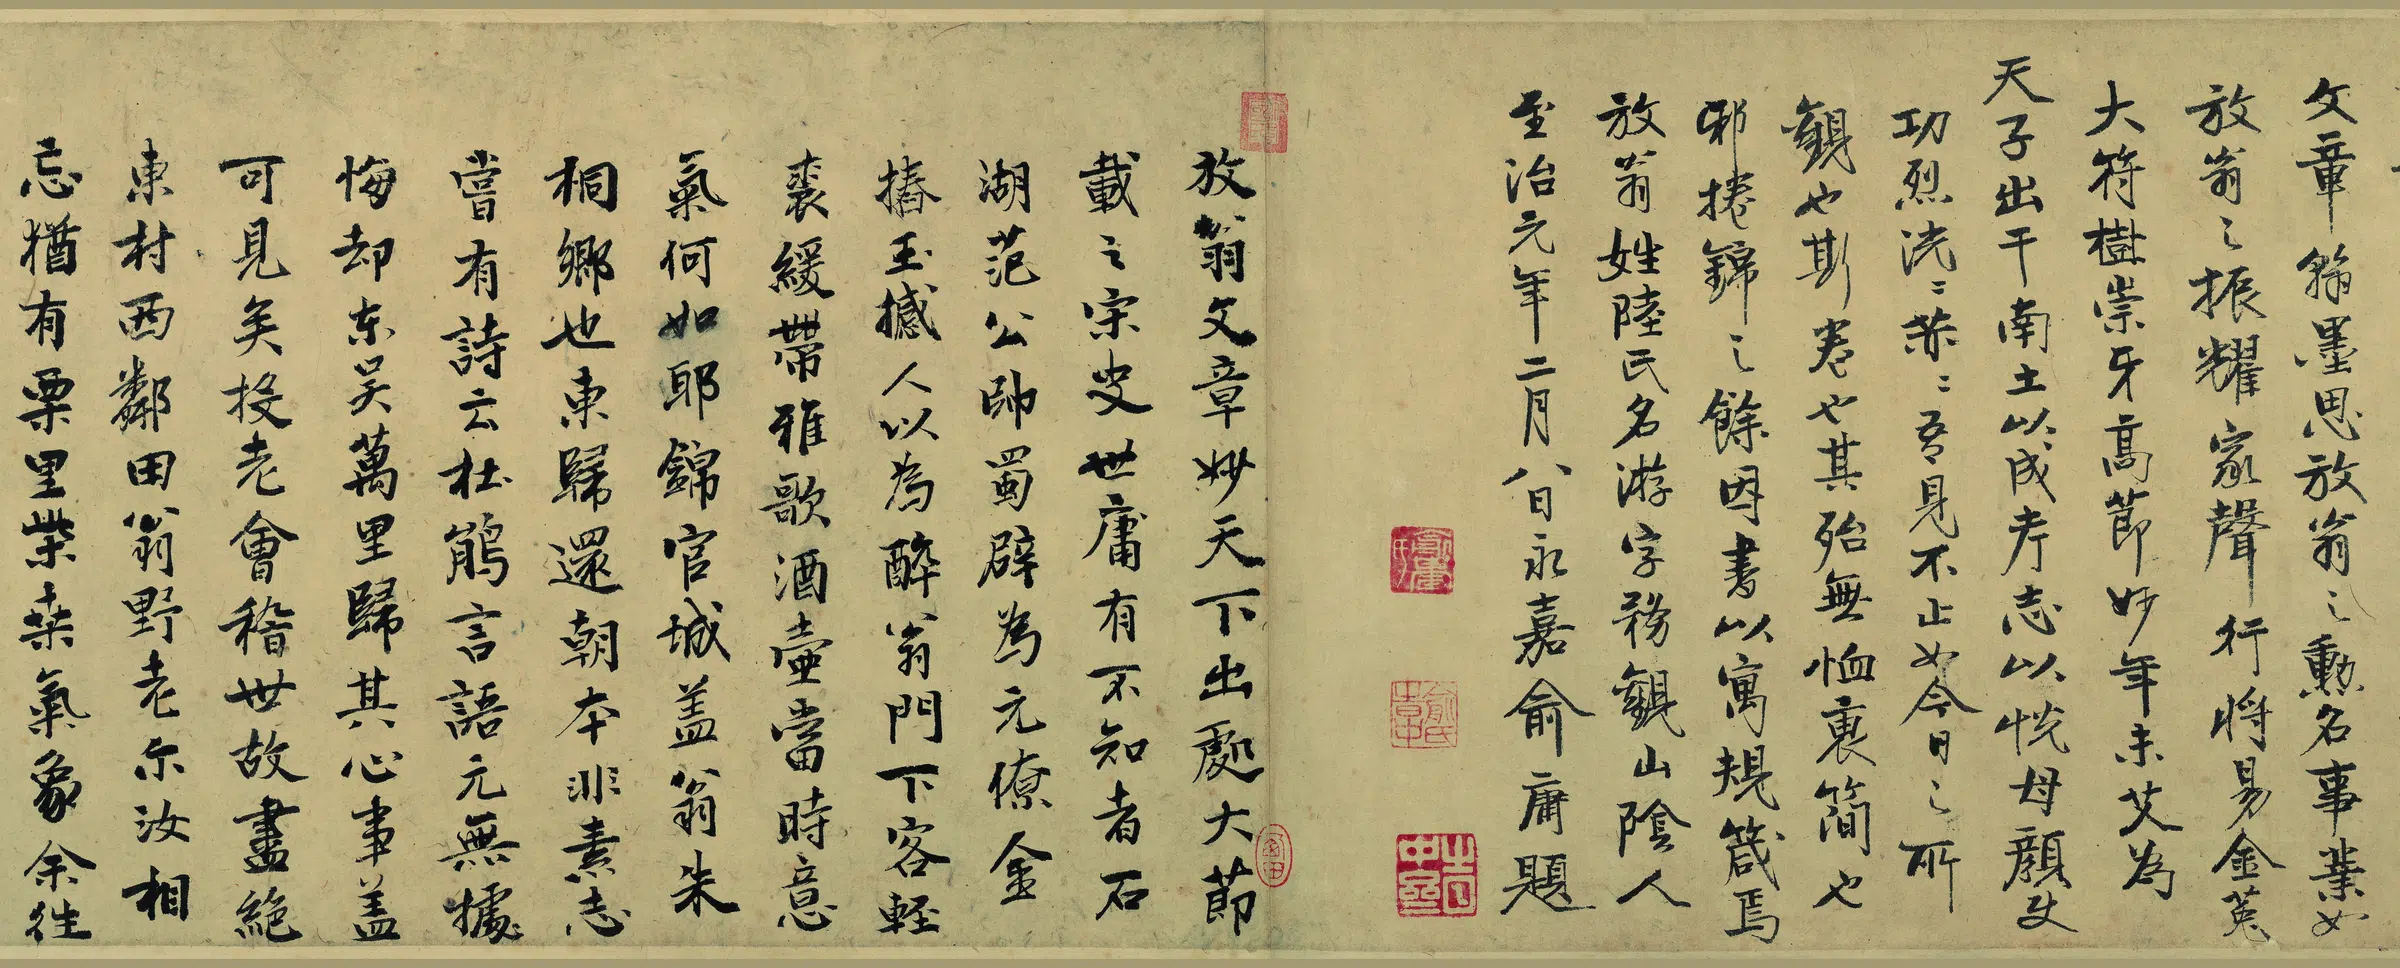 文章翰墨思放翁之勳名事業如
放翁之振耀家聲行將易金菟
大符樹崇牙高節妙年未艾為
天子出干南土以成考志以悦母顏史
功烈洸〻赫〻吾見不止如今日之所
觀也斯卷也其殆無恤裏簡也
邪捲錦之餘因書以寓規箴焉
放翁姓陸氏名游字務觀山陰人
至治元年二月八日永嘉俞庸題
放翁文章妙天下出處大節
載之宋史世庸有不知者石
湖范公帥蜀辟為元僚金
摏玉撼人以為醉翁門下客輕
裘緩帶雅歌酒壺當時意
氣何如耶錦官城蓋翁朱
桐鄉也東歸還朝本非素志
嘗有詩云杜鵑言語元無據
悔却东吴萬里歸其心事盖
可見矣投老會稽世故盡絕
東村西鄰田翁野老尔汝相
忘猶有栗里柴桑氣象余往